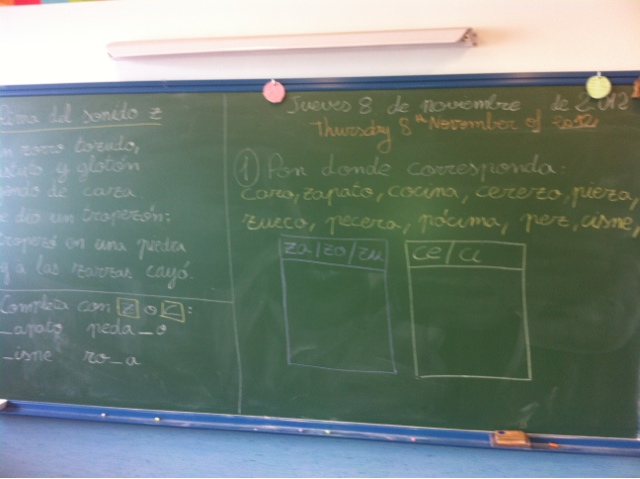 Rima del sonido z
Un zorro tozudo,
astuto y glotón
yendo de caza
se dio un tropezón:
tropezó en una piedra
y a las zarzas cayó.
Completa con z o c:
_apato peda_o
_isne ro_a
Jueves 8 de noviembre de 2012
Thursday 8th November of 2012
1) Pon donde corresponda:
cazo, zapato, cocina, cerezo, pieza,
zueco, pecera, pócima, pez, cisne,
za/zo/zu
ce/ci